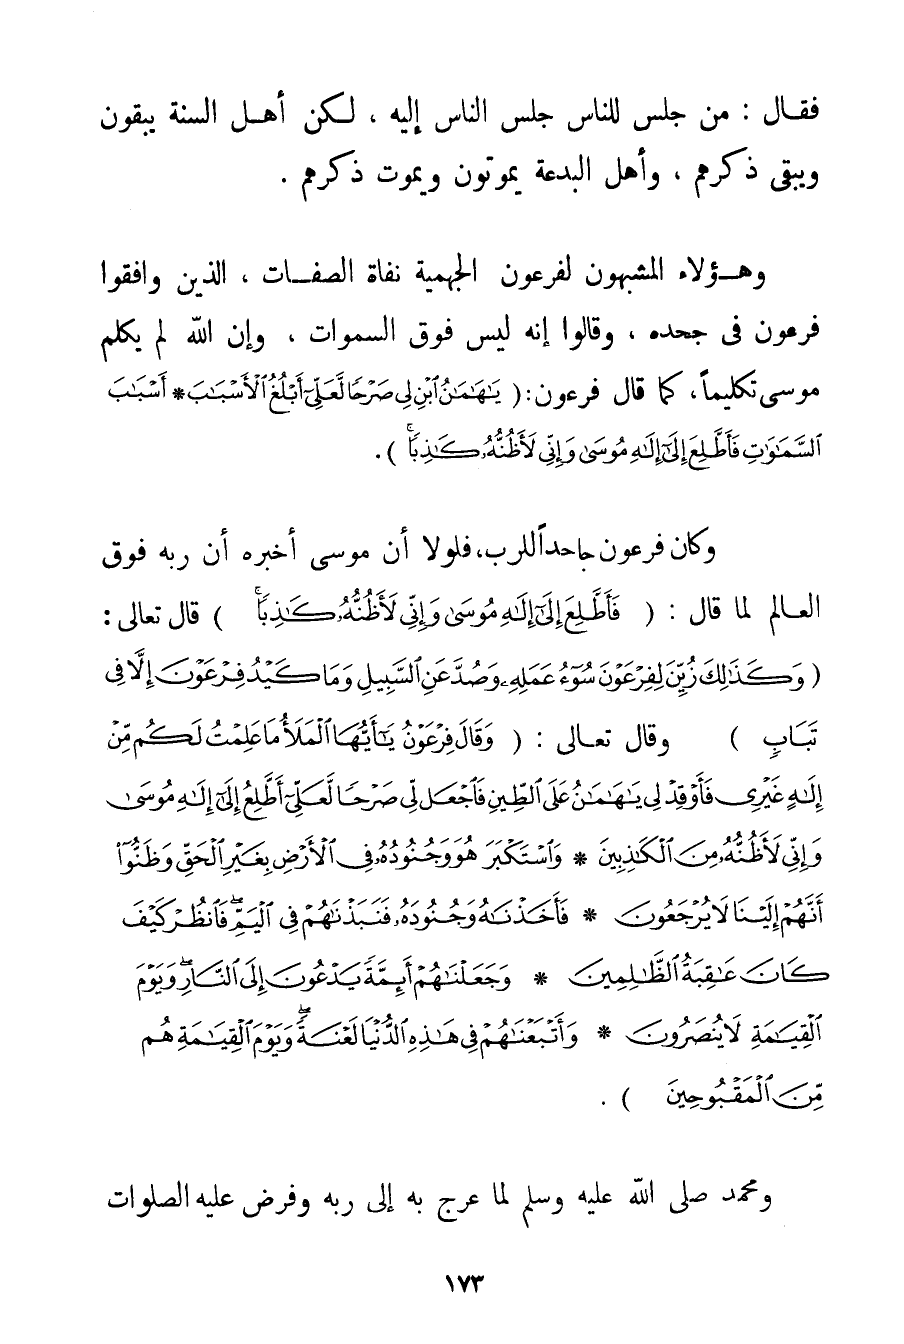 فقـال : من جلس للناس جلس الناس إليه ، لـكن أهـل السنة يبقون
ويبقى ذكرهم ، وأهل البدعة يموتون ويموت ذكرهم .
وهـؤلاء المشبهون لفرعون الجهمية نفاة الصفـات ، الذين وافقوا
فرعون فى جحده ، وقالوا إنه ليس فوق السموات ، وإن الله لم يكلم
موسى تكليماً، كما قال فرعون: ( يَـٰهَـٰمَـٰنُ ٱبْنِ لِى صَرْحًا لَّعَلِّىٓ أَبْلُغُ ٱلْأَسْبَـٰبَ * أَسْبَـٰبَ
ٱلسَّمَـٰوَٰتِ فَأَطَّلِعَ إِلَىٰٓ إِلَـٰهِ مُوسَىٰ وَإِنِّى لَأَظُنُّهُۥ كَـٰذِبًا ۚ ) .
وكان فرعون جاحداً للرب، فلولا أن موسى أخبره أن ربه فوق
العـالم لما قال : ( فَأَطَّلِعَ إِلَىٰٓ إِلَـٰهِ مُوسَىٰ وَإِنِّى لَأَظُنُّهُۥ كَـٰذِبًا ۚ ) قال تعالى :
( وَكَذَٰلِكَ زُيِّنَ لِفِرْعَوْنَ سُوٓءُ عَمَلِهِۦ وَصُدَّ عَنِ ٱلسَّبِيلِ وَمَا كَيْدُ فِرْعَوْنَ إِلَّا فِى
تَبَابٍ ) وقال تعـالى : ( وَقَالَ فِرْعَوْنُ يَـٰٓأَيُّهَا ٱلْمَلَأُ مَا عَلِمْتُ لَكُم مِّنْ
إِلَـٰهٍ غَيْرِى فَأَوْقِدْ لِى يَـٰهَـٰمَـٰنُ عَلَى ٱلطِّينِ فَٱجْعَل لِّى صَرْحًا لَّعَلِّىٓ أَطَّلِعُ إِلَىٰٓ إِلَـٰهِ مُوسَىٰ
وَإِنِّى لَأَظُنُّهُۥ مِنَ ٱلْكَـٰذِبِينَ * وَٱسْتَكْبَرَ هُوَ وَجُنُودُهُۥ فِى ٱلْأَرْضِ بِغَيْرِ ٱلْحَقِّ وَظَنُّوٓا۟
أَنَّهُمْ إِلَيْنَا لَا يُرْجَعُونَ * فَأَخَذْنَـٰهُ وَجُنُودَهُۥ فَنَبَذْنَـٰهُمْ فِى ٱلْيَمِّ ۖ فَٱنظُرْ كَيْفَ
كَانَ عَـٰقِبَةُ ٱلظَّـٰلِمِينَ * وَجَعَلْنَـٰهُمْ أَئِمَّةً يَدْعُونَ إِلَى ٱلنَّارِ ۖ وَيَوْمَ
ٱلْقِيَـٰمَةِ لَا يُنصَرُونَ * وَأَتْبَعْنَـٰهُمْ فِى هَـٰذِهِ ٱلدُّنْيَا لَعْنَةً ۖ وَيَوْمَ ٱلْقِيَـٰمَةِ هُم
مِّنَ ٱلْمَقْبُوحِينَ ) .
ومحمد صلى الله عليه وسلم لما عرج به إلى ربه وفرض عليه الصلوات
١٧٣